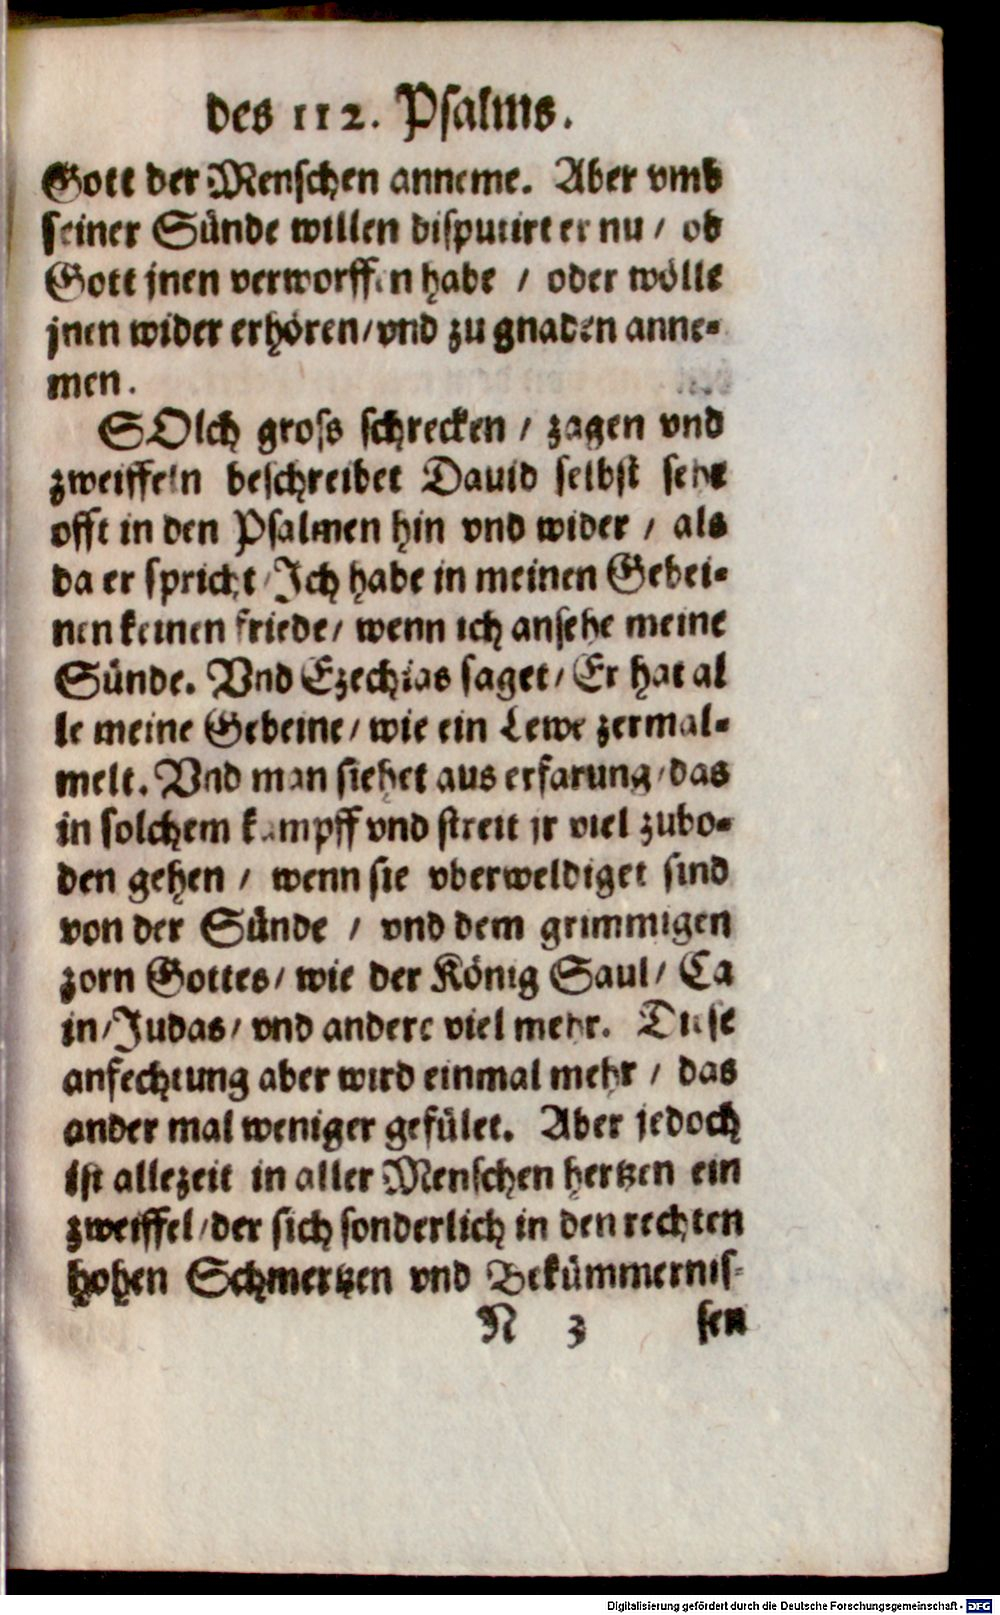 des 112. Psalms.
Gott der Menschen anneme. Aber vmb
seiner Sünde willen disputirt er nu / ob
Gott jnen verworffen habe / oder wölle
jnen wider erhören / vnd zu gnaden anne-
men.
SOlch gross schrecken / zagen vnd
zweiffeln beschreibet Dauid selbst sehr
offt in den Psalmen hin vnd wider / als
da er spricht / Ich habe in meinen Gebei-
nen keinen friede / wenn ich ansehe meine
Sünde. Vnd Ezechias saget / Er hat al
le meine Gebeine / wie ein Lewe zermal-
melt. Vnd man siehet aus erfarung / das
in solchem kampff vnd streit jr viel zubo-
den gehen / wenn sie vberweldiget sind
von der Sünde / vnd dem grimmigen
zorn Gottes / wie der König Saul / Ca
in / Judas / vnd andere viel mehr. Diese
anfechtung aber wird einmal mehr / das
ander mal weniger gefület. Aber jedoch
ist allezeit in aller Menschen hertzen ein
zweiffel / der sich sonderlich in den rechten
hohen Schmertzen vnd Bekümmernis-
N 3 sen
Digitalisierung gefördert durch die Deutsche Forschungsgemeinschaft - DFG